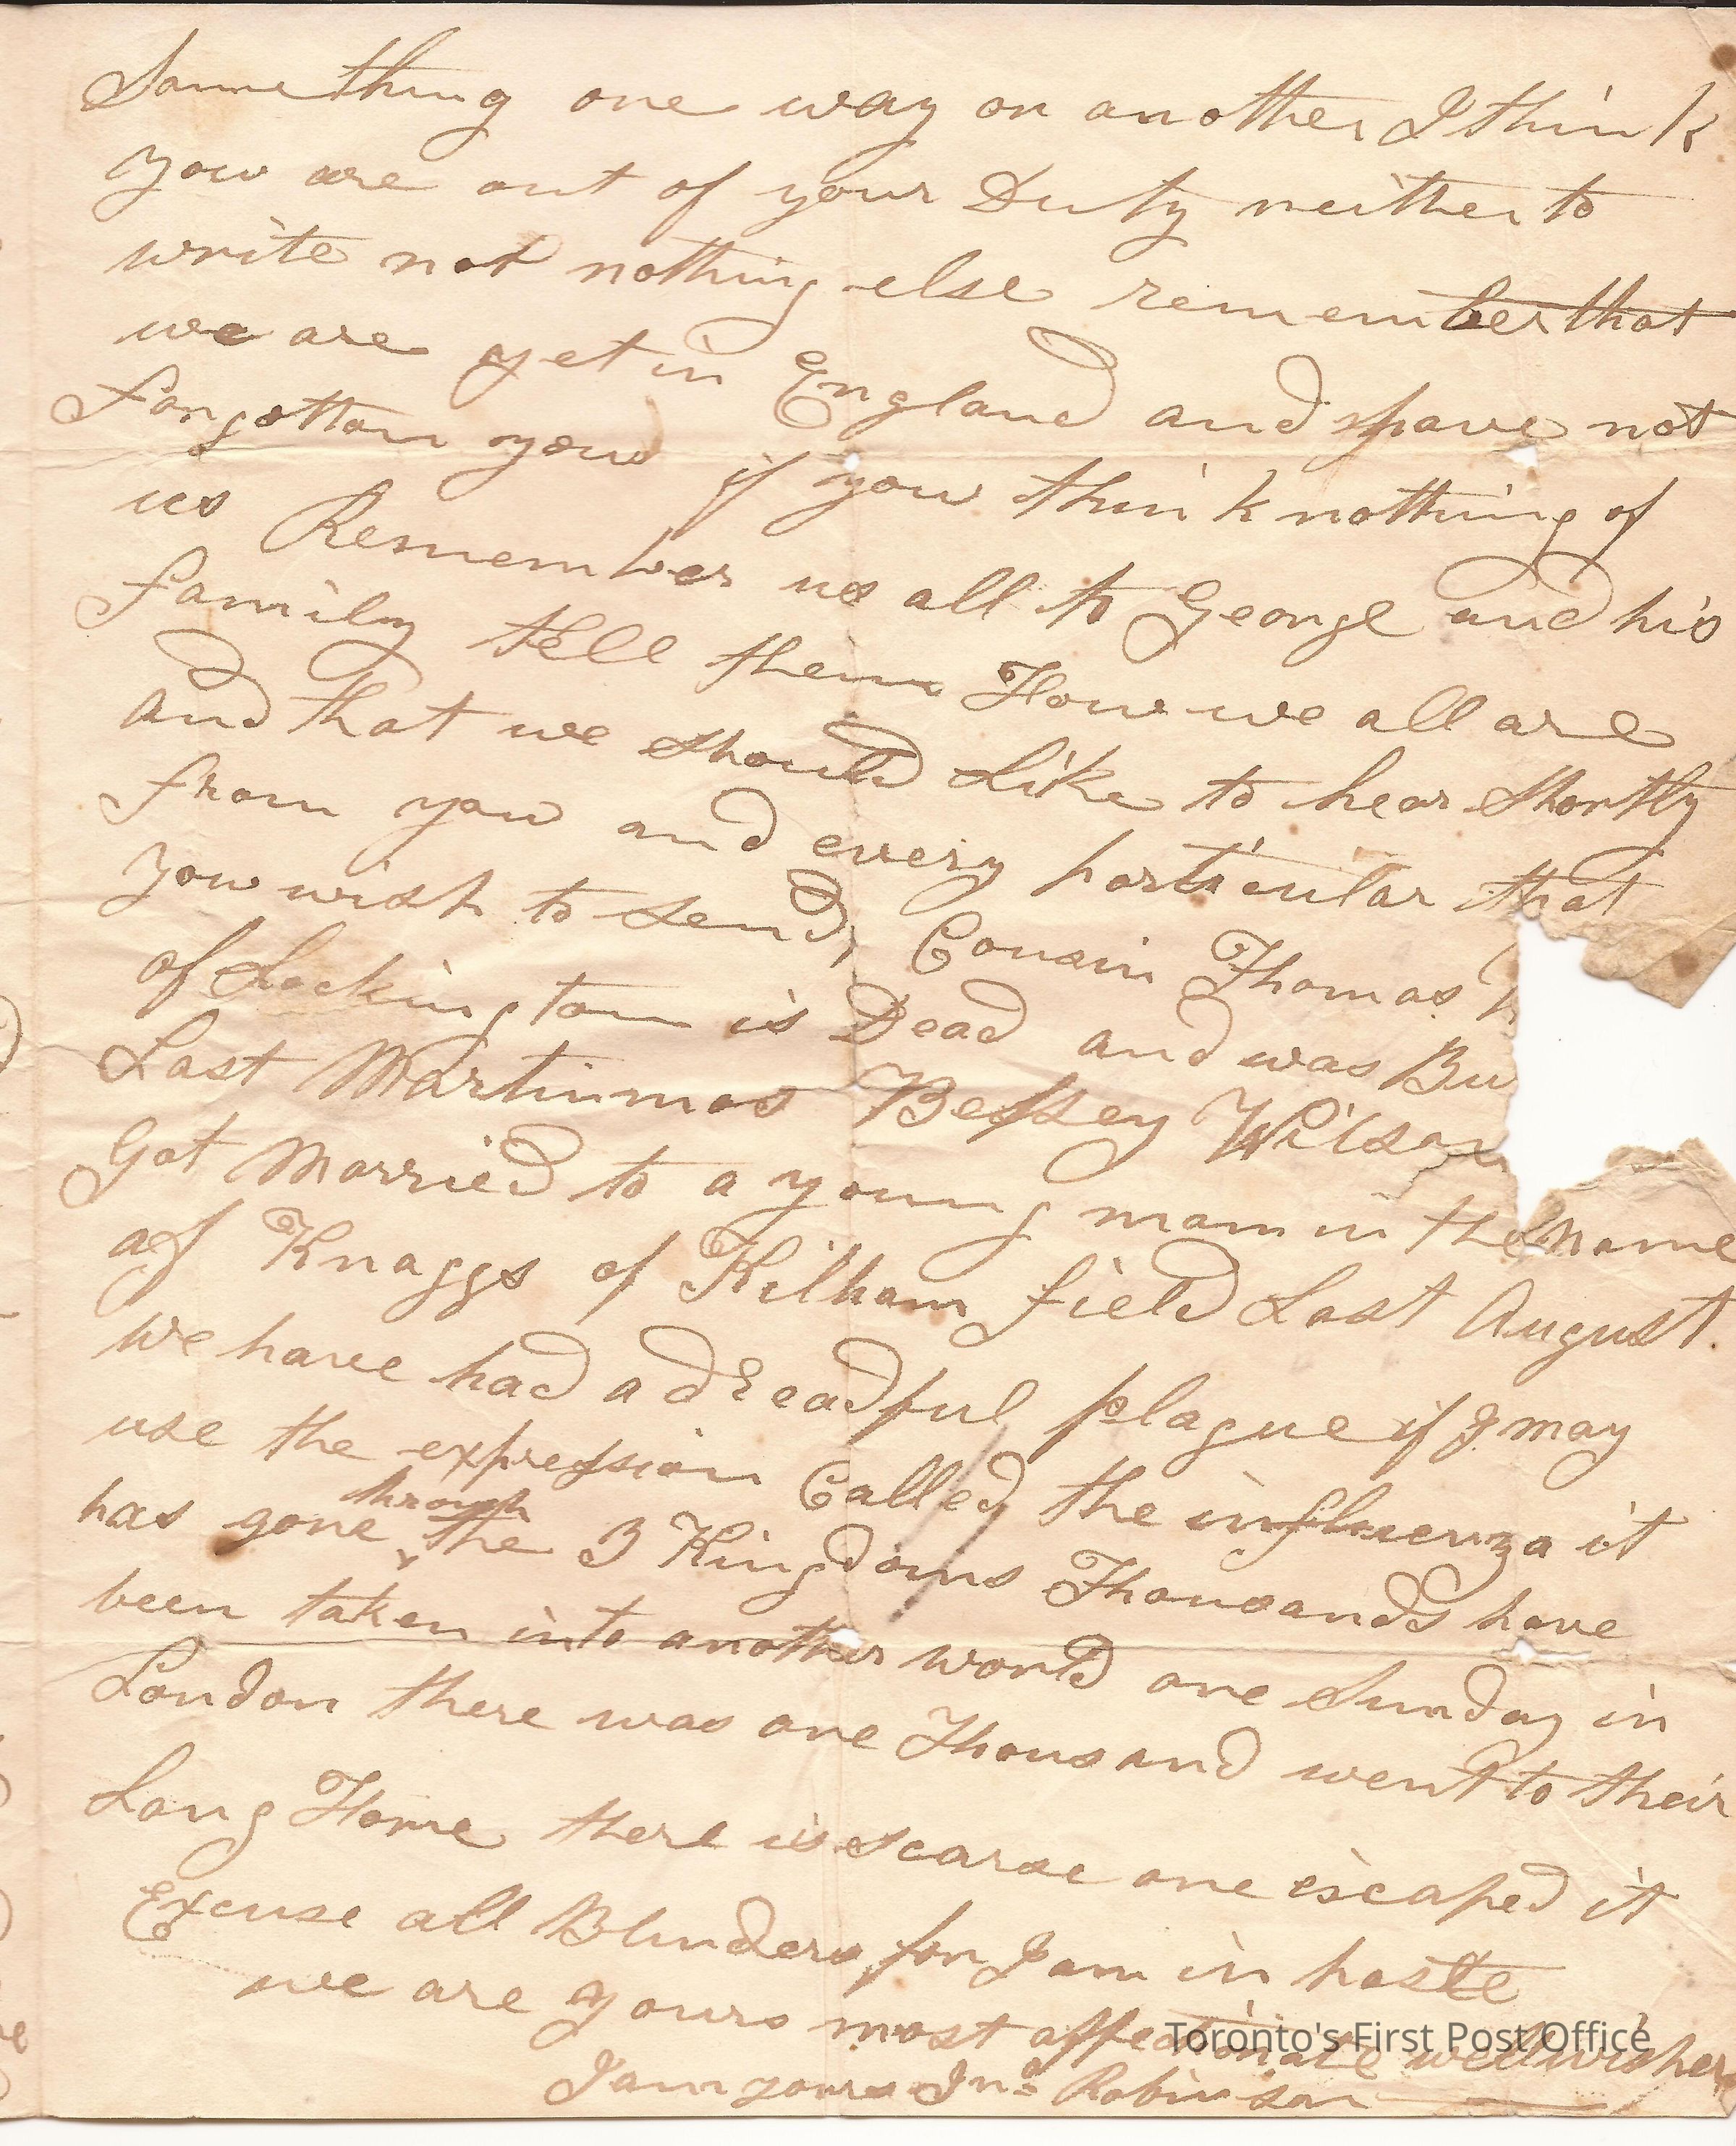 Something one way or another I think
you are out of your Duty neither to
write not nothing else remember that
we are yet in England and have not
forgotton you if you think nothing of
us Remember us all to George and his
family tell them How we all are
and that we should Like to hear Shortly
from you and every particular that
you wish to send, Cousin Thomas
of Lockington is Dead and was Bu
Last Martinmas Bessey Wilson
Got Married to a young man in the name
of Knaggs of Kilham field Last August.
We have had a dreadful plague if I may
use the expression Called the influenza it
has gone through the 3 Kingdoms Thousands have
been taken into another world one Sunday in
London there was one Thousand went to their
Long Home there is scarse one escaped it
Excuse all Blunders for I am in haste
we are yours most affectionate wellwishers
I am yours Jno Robinson
Toronto's First Post Office